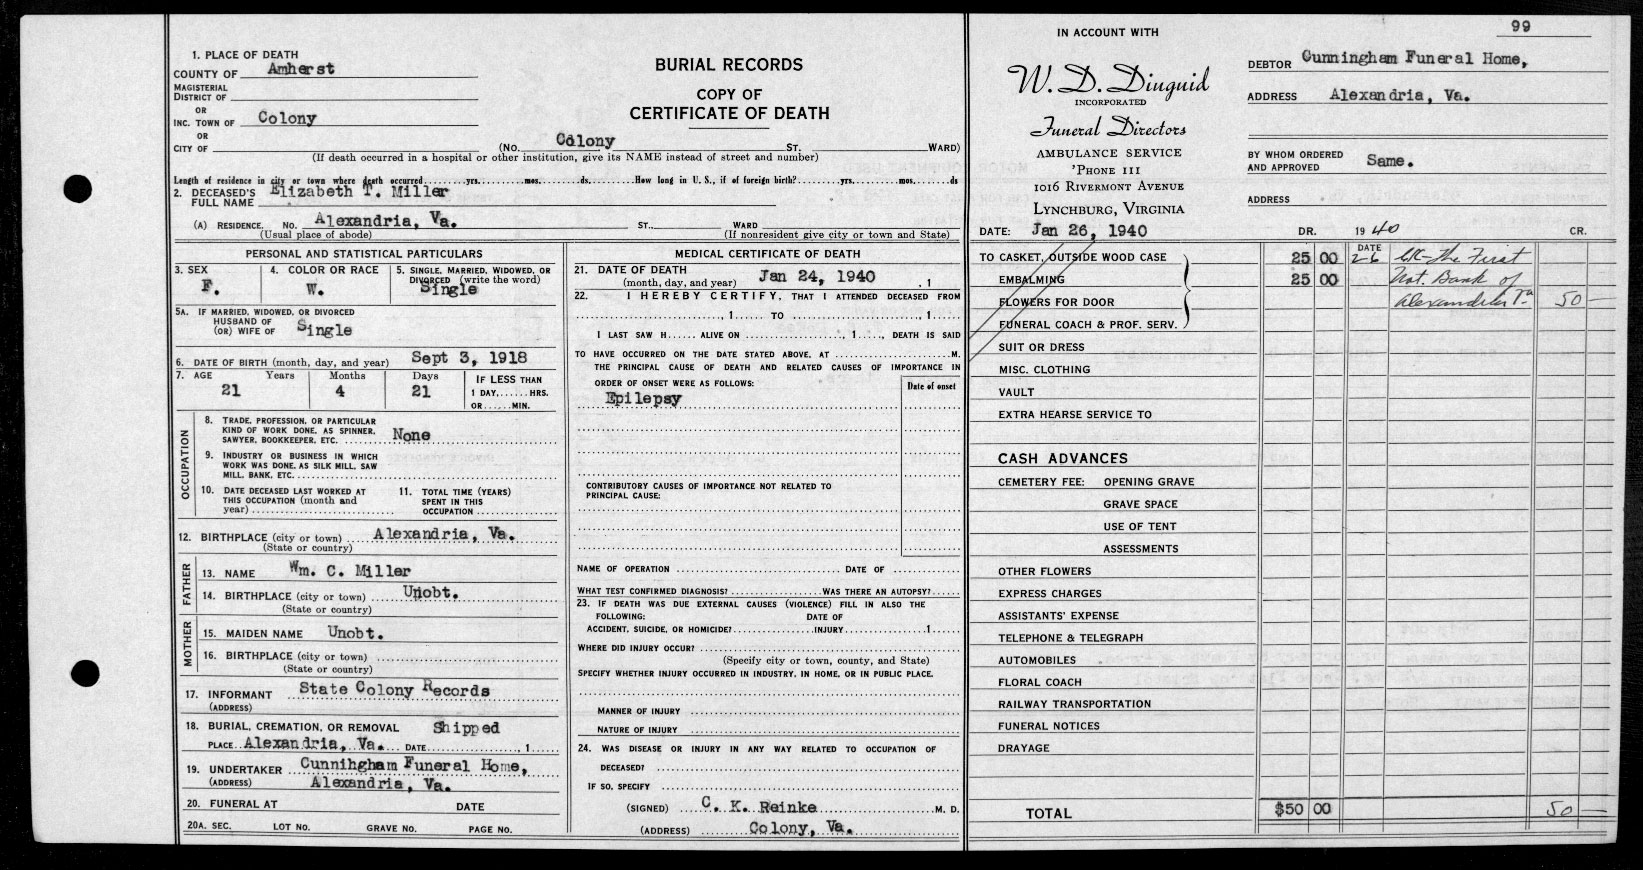 99
1. PLACE OF DEATH
COUNTY OF Amherst
MAGISTERIAL
DISTRICT OF
OR
INC. TOWN OF Colony
OR
CITY OF
BURIAL RECORDS
COPY OF
CERTIFICATE OF DEATH
(NO. Colony ST. WARD)
(If death occurred in a hospital or other institution, give its NAME instead of street and number)
Length of residence in city or town where death occurred........yrs..........mos..........ds..........How long in U. S., if of foreign birth?........yrs..........mos..........ds
2. DECEASED'S
FULL NAME Elizabeth T. Miller
(A) RESIDENCE. NO. Alexandria, Va. ST.. WARD
(Usual place of abode) (If nonresident give city or town and State)
PERSONAL AND STATISTICAL PARTICULARS
3. SEX
F.
4. COLOR OR RACE
W.
5. SINGLE, MARRIED, WIDOWED, OR
DIVORCED (write the word)
Single
5A. IF MARRIED, WIDOWED, OR DIVORCED
HUSBAND OF
(OR) WIFE OF Single
6. DATE OF BIRTH (month, day, and year) Sept 3, 1918
7. AGE Years Months Days
21 4 21
IF LESS THAN
1 DAY,......HRS.
OR......MIN.
OCCUPATION
8. TRADE, PROFESSION, OR PARTICULAR
KIND OF WORK DONE, AS SPINNER,
SAWYER, BOOKKEEPER, ETC. None
9. INDUSTRY OR BUSINESS IN WHICH
WORK WAS DONE, AS SILK MILL, SAW
MILL, BANK, ETC.
10. DATE DECEASED LAST WORKED AT
THIS OCCUPATION (month and
year)
11. TOTAL TIME (YEARS)
SPENT IN THIS
OCCUPATION
12. BIRTHPLACE (city or town) Alexandria, Va.
(State or country)
FATHER
13. NAME Wm. C. Miller
14. BIRTHPLACE (city or town) Unobt.
(State or country)
MOTHER
15. MAIDEN NAME Unobt.
16. BIRTHPLACE (city or town)
(State or country)
17. INFORMANT State Colony Records
(ADDRESS)
18. BURIAL, CREMATION, OR REMOVAL Shipped
PLACE Alexandria, Va. DATE , 1
19. UNDERTAKER Cunnihgham Funeral Home,
(ADDRESS) Alexandria, Va.
20. FUNERAL AT DATE
20A. SEC. LOT NO. GRAVE NO. PAGE NO.
MEDICAL CERTIFICATE OF DEATH
21. DATE OF DEATH
(month, day, and year) Jan 24, 1940 , 1
22. I HEREBY CERTIFY, THAT I ATTENDED DECEASED FROM
, 1 TO , 1
I LAST SAW H...... ALIVE ON , 1 , DEATH IS SAID
TO HAVE OCCURRED ON THE DATE STATED ABOVE, AT M.
THE PRINCIPAL CAUSE OF DEATH AND RELATED CAUSES OF IMPORTANCE IN
ORDER OF ONSET WERE AS FOLLOWS: Date of onset
Epilepsy
CONTRIBUTORY CAUSES OF IMPORTANCE NOT RELATED TO
PRINCIPAL CAUSE:
NAME OF OPERATION DATE OF
WHAT TEST CONFIRMED DIAGNOSIS? WAS THERE AN AUTOPSY?
23. IF DEATH WAS DUE EXTERNAL CAUSES (VIOLENCE) FILL IN ALSO THE
FOLLOWING: DATE OF
ACCIDENT, SUICIDE, OR HOMICIDE? INJURY 1
WHERE DID INJURY OCCUR?
(Specify city or town, county, and State)
SPECIFY WHETHER INJURY OCCURRED IN INDUSTRY, IN HOME, OR IN PUBLIC PLACE.
MANNER OF INJURY
NATURE OF INJURY
24. WAS DISEASE OR INJURY IN ANY WAY RELATED TO OCCUPATION OF
DECEASED?
IF SO, SPECIFY
(SIGNED) C. K. Reinke M. D.
(ADDRESS) Colony, Va.
IN ACCOUNT WITH
W. D. Diuguid
INCORPORATED
Funeral Directors
AMBULANCE SERVICE
'PHONE 111
1016 RIVERMONT AVENUE
LYNCHBURG, VIRGINIA
DEBTOR Cunningham Funeral Home,
ADDRESS Alexandria, Va.
BY WHOM ORDERED
AND APPROVED Same.
ADDRESS
DATE: Jan 26, 1940 DR. 1940 CR.
TO CASKET, OUTSIDE WOOD CASE 25 00 DATE 26 CK-The First
EMBALMING 25 00 Nat. Bank of
FLOWERS FOR DOOR Alexandria Va 50 —
FUNERAL COACH & PROF. SERV.
SUIT OR DRESS
MISC. CLOTHING
VAULT
EXTRA HEARSE SERVICE TO
CASH ADVANCES
CEMETERY FEE: OPENING GRAVE
GRAVE SPACE
USE OF TENT
ASSESSMENTS
OTHER FLOWERS
EXPRESS CHARGES
ASSISTANTS' EXPENSE
TELEPHONE & TELEGRAPH
AUTOMOBILES
FLORAL COACH
RAILWAY TRANSPORTATION
FUNERAL NOTICES
DRAYAGE
TOTAL $50 00 50 —